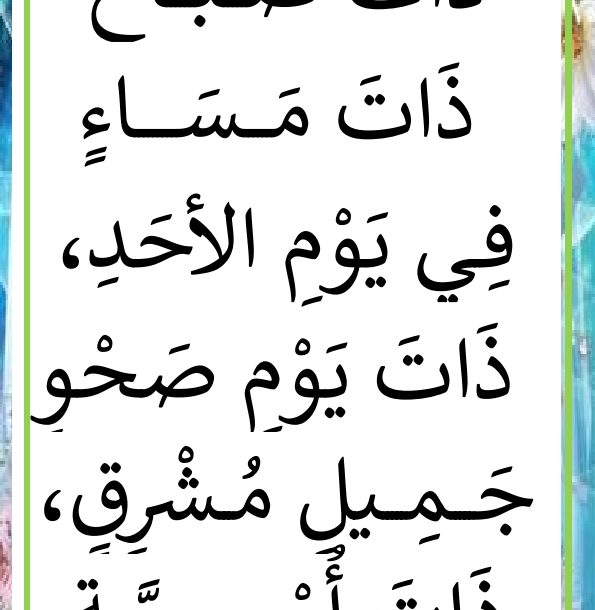 ذَاتَ مَـسَـــاءٍ
فِي يَوْمِ الأَحَدِ،
ذَاتَ يَوْمٍ صَحْوٍ
جَـمِـيلٍ مُـشْرِقٍ،